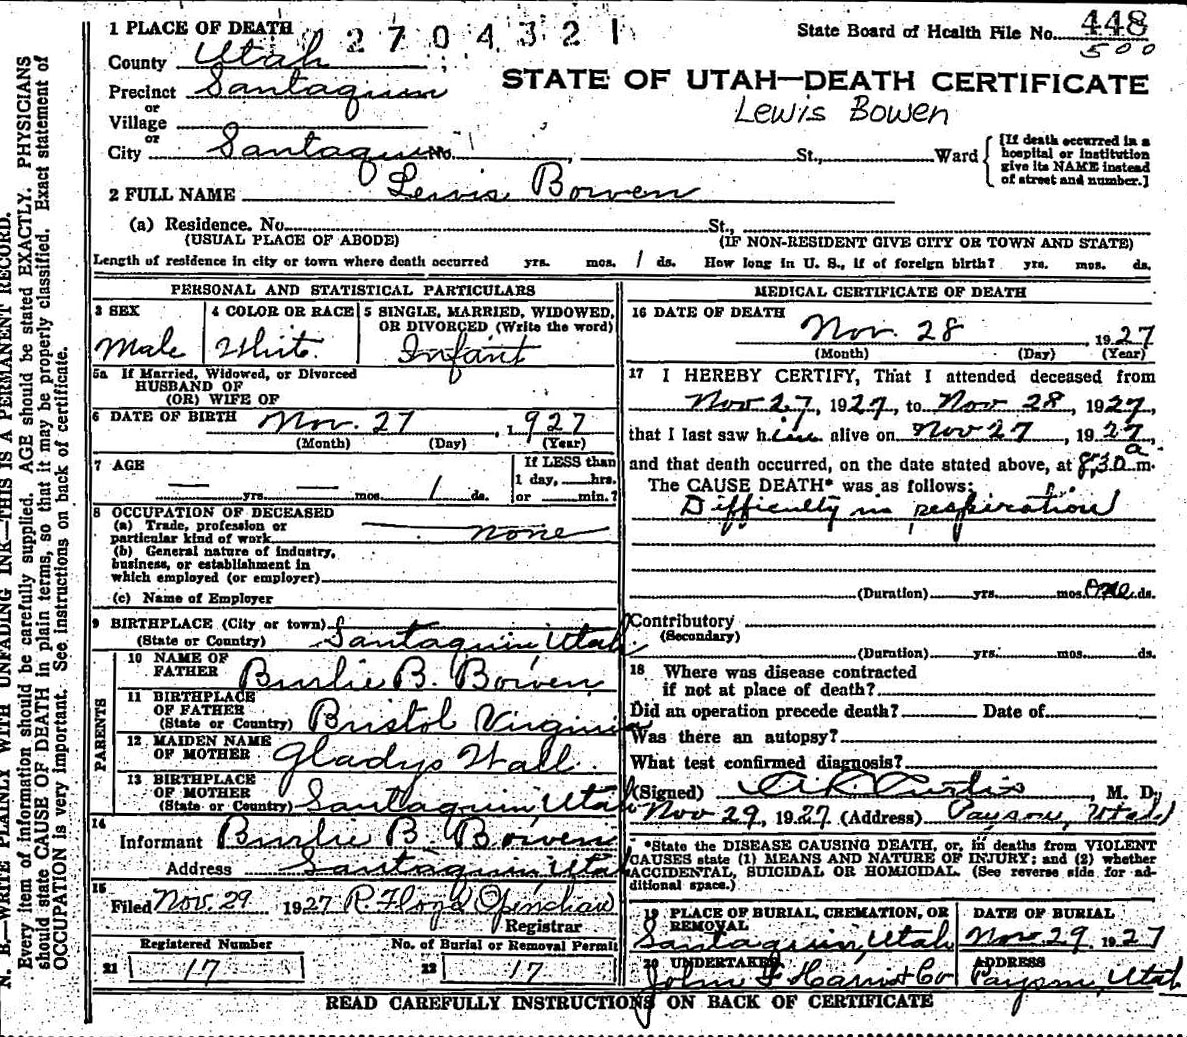 1 PLACE OF DEATH 2704321 State Board of Health File No. 448
500
County Utah
STATE OF UTAH—DEATH CERTIFICATE
Precinct Santaquin
Lewis Bowen
or
Village
or
City Santaquin No. , St., Ward
[If death occurred in a
hospital or institution
give its NAME instead
of street and number.]
2 FULL NAME Lewis Bowen
(a) Residence. No. St.,
(USUAL PLACE OF ABODE) (IF NON-RESIDENT GIVE CITY OR TOWN AND STATE)
Length of residence in city or town where death occurred yrs. mos. 1 ds. How long in U. S., if of foreign birth? yrs. mos. ds.
PERSONAL AND STATISTICAL PARTICULARS
3 SEX 4 COLOR OR RACE 5 SINGLE, MARRIED, WIDOWED,
OR DIVORCED (Write the word)
Male White Infant
5a If Married, Widowed, or Divorced
HUSBAND OF
(OR) WIFE OF
6 DATE OF BIRTH Nov. 27, 1927
(Month) (Day) (Year)
7 AGE If LESS than
1 day, hrs.
— yrs. — mos. 1 ds. or min.?
8 OCCUPATION OF DECEASED
(a) Trade, profession or
particular kind of work none
(b) General nature of industry,
business, or establishment in
which employed (or employer)
(c) Name of Employer
9 BIRTHPLACE (City or town) Santaquin, Utah
(State or Country)
PARENTS
10 NAME OF
FATHER Burlie B. Bowen
11 BIRTHPLACE
OF FATHER
(State or Country) Bristol Virginia
12 MAIDEN NAME
OF MOTHER Gladys Wall
13 BIRTHPLACE
OF MOTHER
(State or Country) Santaquin, Utah
14
Informant Burlie B. Bowen
Address Santaquin, Utah
15
Filed Nov. 29 1927 R. Floyd Openshaw
Registrar
Registered Number No. of Burial or Removal Permit
21 17 22 17
MEDICAL CERTIFICATE OF DEATH
16 DATE OF DEATH
Nov. 28 1927
(Month) (Day) (Year)
17 I HEREBY CERTIFY, That I attended deceased from
Nov 27, 1927, to Nov 28, 1927,
that I last saw him alive on Nov 27, 1927,
and that death occurred, on the date stated above, at 8:30 a m.
The CAUSE DEATH* was as follows:
Difficulty in respiration
(Duration) yrs. mos. One ds.
Contributory
(Secondary)
(Duration) yrs. mos. ds.
18 Where was disease contracted
if not at place of death?
Did an operation precede death? Date of
Was there an autopsy?
What test confirmed diagnosis?
(Signed) Curtis, M. D.
Nov 29, 1927 (Address) Payson, Utah
*State the DISEASE CAUSING DEATH, or, in deaths from VIOLENT
CAUSES state (1) MEANS AND NATURE OF INJURY; and (2) whether
ACCIDENTAL, SUICIDAL OR HOMICIDAL. (See reverse side for ad-
ditional space.)
19 PLACE OF BURIAL, CREMATION, OR
REMOVAL
Santaquin, Utah
DATE OF BURIAL
Nov 29 1927
20 UNDERTAKER
John F Co
ADDRESS
Payson, Utah
READ CAREFULLY INSTRUCTIONS ON BACK OF CERTIFICATE
N. B.—WRITE PLAINLY WITH UNFADING INK—THIS IS A PERMANENT RECORD.
Every item of information should be carefully supplied. AGE should be stated EXACTLY. PHYSICIANS
should state CAUSE OF DEATH in plain terms, so that it may be properly classified. Exact statement of
OCCUPATION is very important. See instructions on back of certificate.